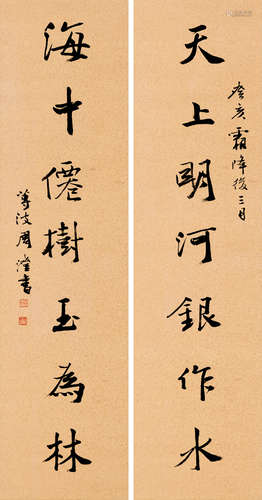 天上明河銀作水
癸亥霜降後三日
海中僊樹玉為林
蓴波周澄書